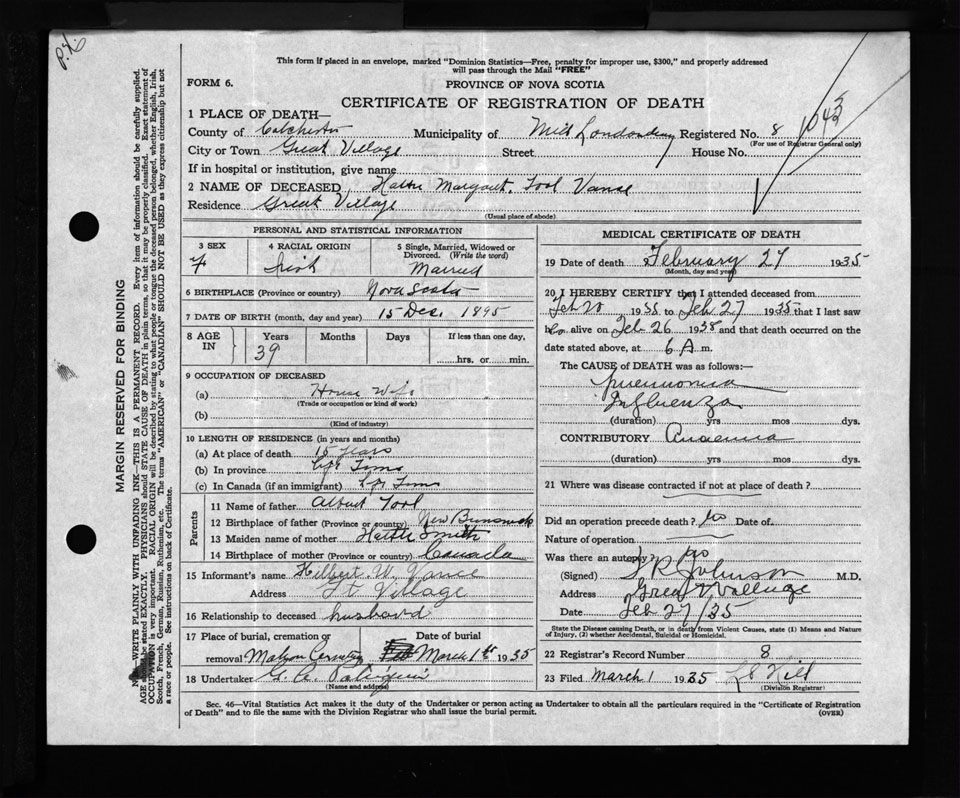 P.X.
This form if placed in an envelope, marked "Dominion Statistics—Free, penalty for improper use, $300," and properly addressed
will pass through the Mail "FREE"
FORM 6.
PROVINCE OF NOVA SCOTIA
CERTIFICATE OF REGISTRATION OF DEATH
1043
1 PLACE OF DEATH—
County of Colchester Municipality of West Londonderry Registered No. 8
(For use of Registrar General only)
City or Town Great Village Street House No.
If in hospital or institution, give name
2 NAME OF DECEASED Hattie Margaret Tool Vance
Residence Great Village
(Usual place of abode)
PERSONAL AND STATISTICAL INFORMATION
3 SEX
F
4 RACIAL ORIGIN
Irish
5 Single, Married, Widowed or
Divorced. (Write the word)
Married
6 BIRTHPLACE (Province or country) Nova Scotia
7 DATE OF BIRTH (month, day and year) 15 Dec. 1895
8 AGE
IN
Years
39
Months
Days
If less than one day,
hrs. or min.
9 OCCUPATION OF DECEASED
(a) House Wife
(Trade or occupation or kind of work)
(b)
(Kind of industry)
10 LENGTH OF RESIDENCE (in years and months)
(a) At place of death 15 years
(b) In province Life Time
(c) In Canada (if an immigrant) Life Time
Parents
11 Name of father Albert Tool
12 Birthplace of father (Province or country) New Brunswick
13 Maiden name of mother Hattie Smith
14 Birthplace of mother (Province or country) Canada
15 Informant's name Hilbert W. Vance
Address Gt Village
16 Relationship to deceased husband
17 Place of burial, cremation or
removal Mahon Cemetery
Date of burial
March 1st 1935
18 Undertaker G. A.
(Name and address)
MEDICAL CERTIFICATE OF DEATH
19 Date of death February 27 1935
(Month, day and year)
20 I HEREBY CERTIFY that I attended deceased from
Feb 20 1935 to Feb 27 1935 that I last saw
her alive on Feb 26 1935 and that death occurred on the
date stated above, at 6 A m.
The CAUSE of DEATH was as follows:—
pneumonia
Influenza
(duration) yrs mos dys.
CONTRIBUTORY Anaemia
(duration) yrs mos dys.
21 Where was disease contracted if not at place of death?
Did an operation precede death? No Date of
Nature of operation
Was there an autopsy? No
(Signed) T R Johnson M.D.
Address Great Village
Date Feb 27/35
State the Disease causing Death, or in death from Violent Causes, state (1) Means and Nature
of Injury, (2) whether Accidental, Suicidal or Homicidal.
22 Registrar's Record Number 8
23 Filed March 1 1935 L S Hill
(Division Registrar)
Sec. 46—Vital Statistics Act makes it the duty of the Undertaker or person acting as Undertaker to obtain all the particulars required in the "Certificate of Registration
of Death" and to file the same with the Division Registrar who shall issue the burial permit.
(OVER)
MARGIN RESERVED FOR BINDING
WRITE PLAINLY WITH UNFADING INK—THIS IS A PERMANENT RECORD. Every item of information should be carefully supplied.
AGE should be stated EXACTLY. PHYSICIANS should STATE CAUSE OF DEATH in plain terms, so that it may be properly classified. Exact statement of
OCCUPATION is very important. RACIAL ORIGIN will be described by stating to what people or tongue the deceased person belonged, whether English, Irish,
Scotch, French, German, Russian, Ruthenian, etc. The terms "AMERICAN" or "CANADIAN" SHOULD NOT BE USED as they express citizenship but not
a race or people. See instructions on back of Certificate.